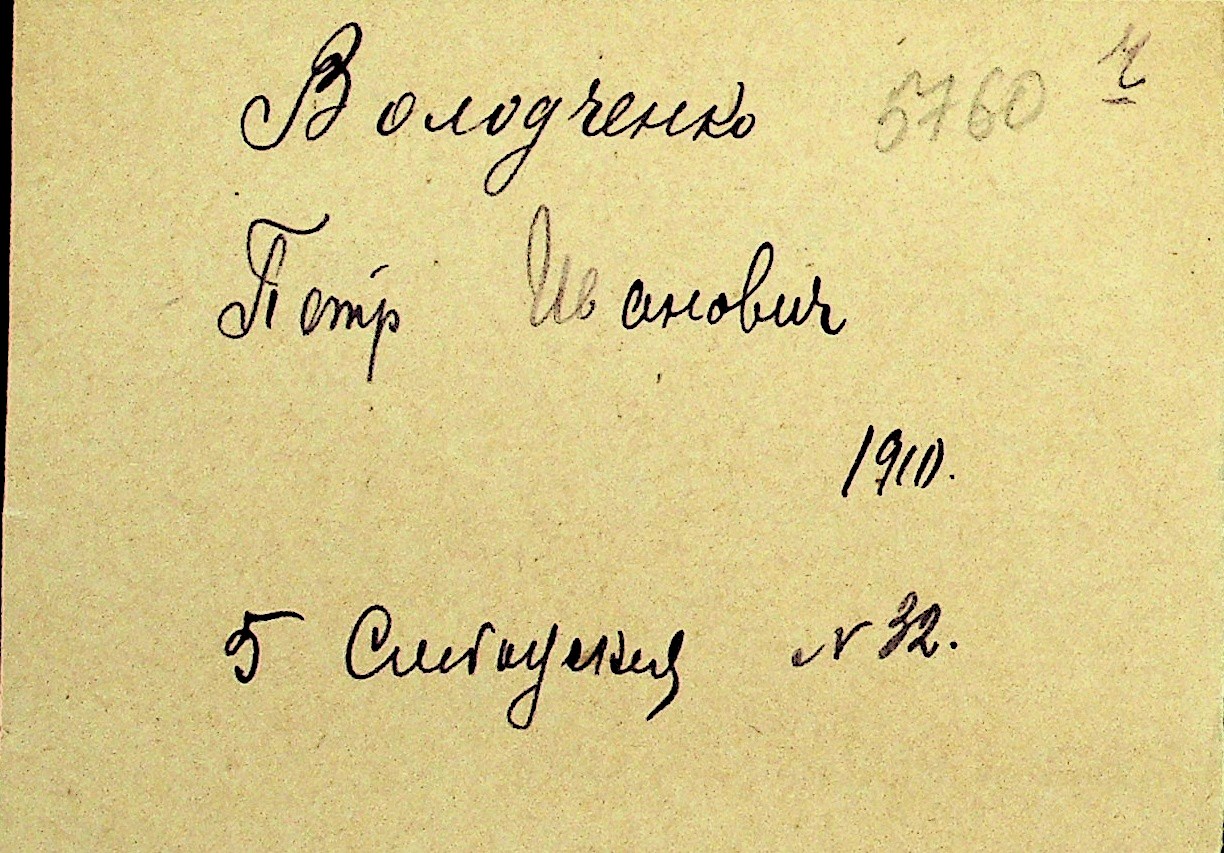 Володченко 5760 ч
Петр Иванович
1910.
5 Слободская № 32.